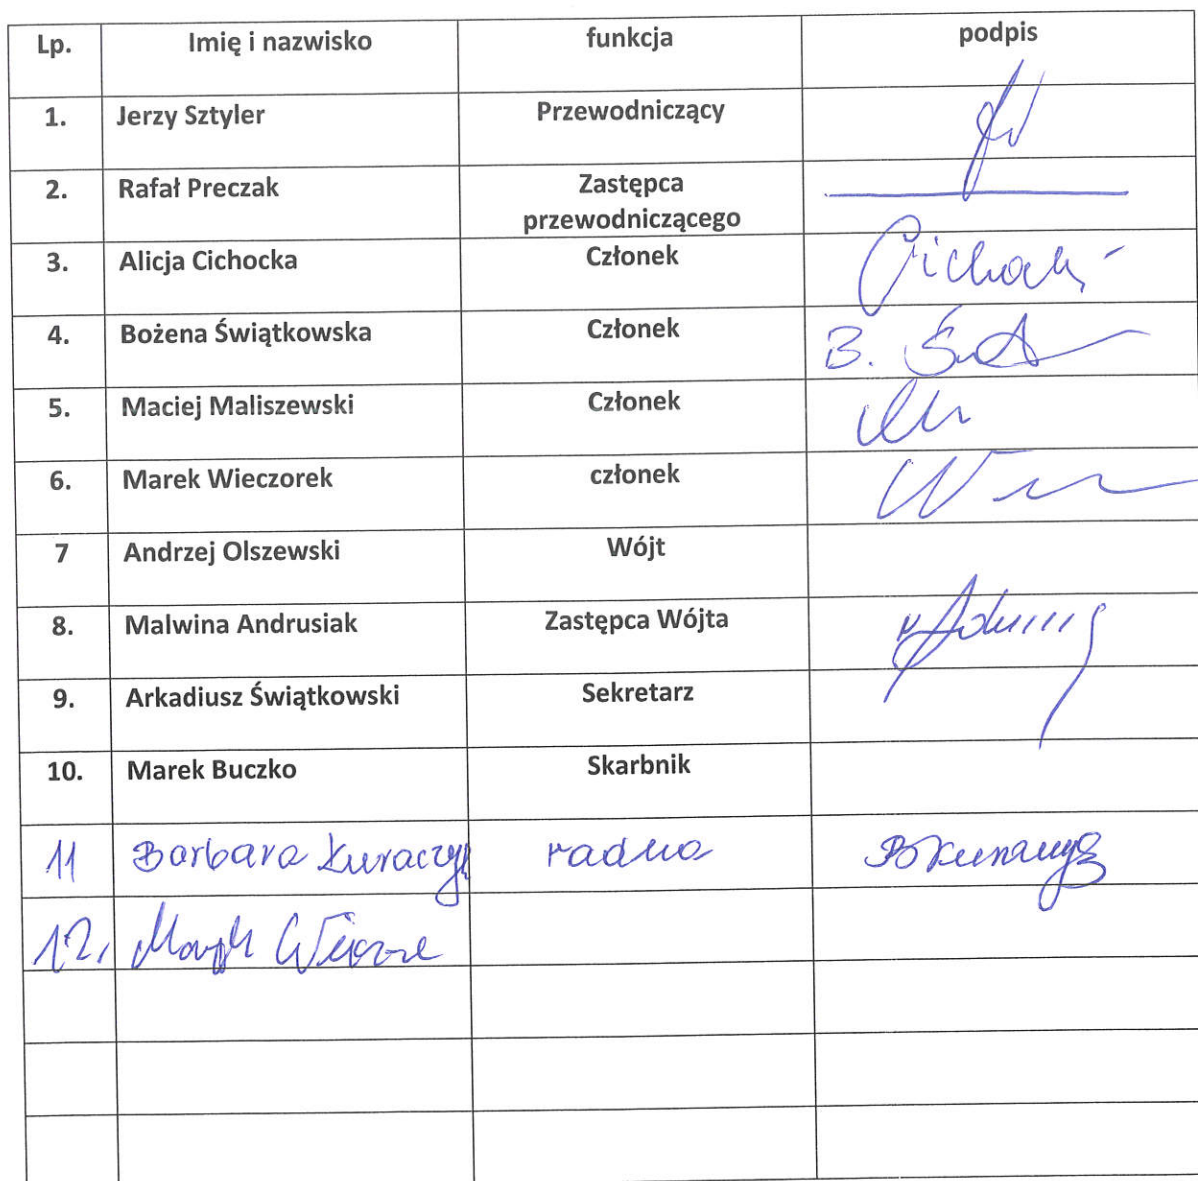 Lp. Imię i nazwisko funkcja podpis
1. Jerzy Sztyler Przewodniczący
2. Rafał Preczak Zastępca
przewodniczącego
3. Alicja Cichocka Członek
4. Bożena Świątkowska Członek B.
5. Maciej Maliszewski Członek
6. Marek Wieczorek członek
7 Andrzej Olszewski Wójt
8. Malwina Andrusiak Zastępca Wójta
9. Arkadiusz Świątkowski Sekretarz
10. Marek Buczko Skarbnik
11 Barbara radna
12.